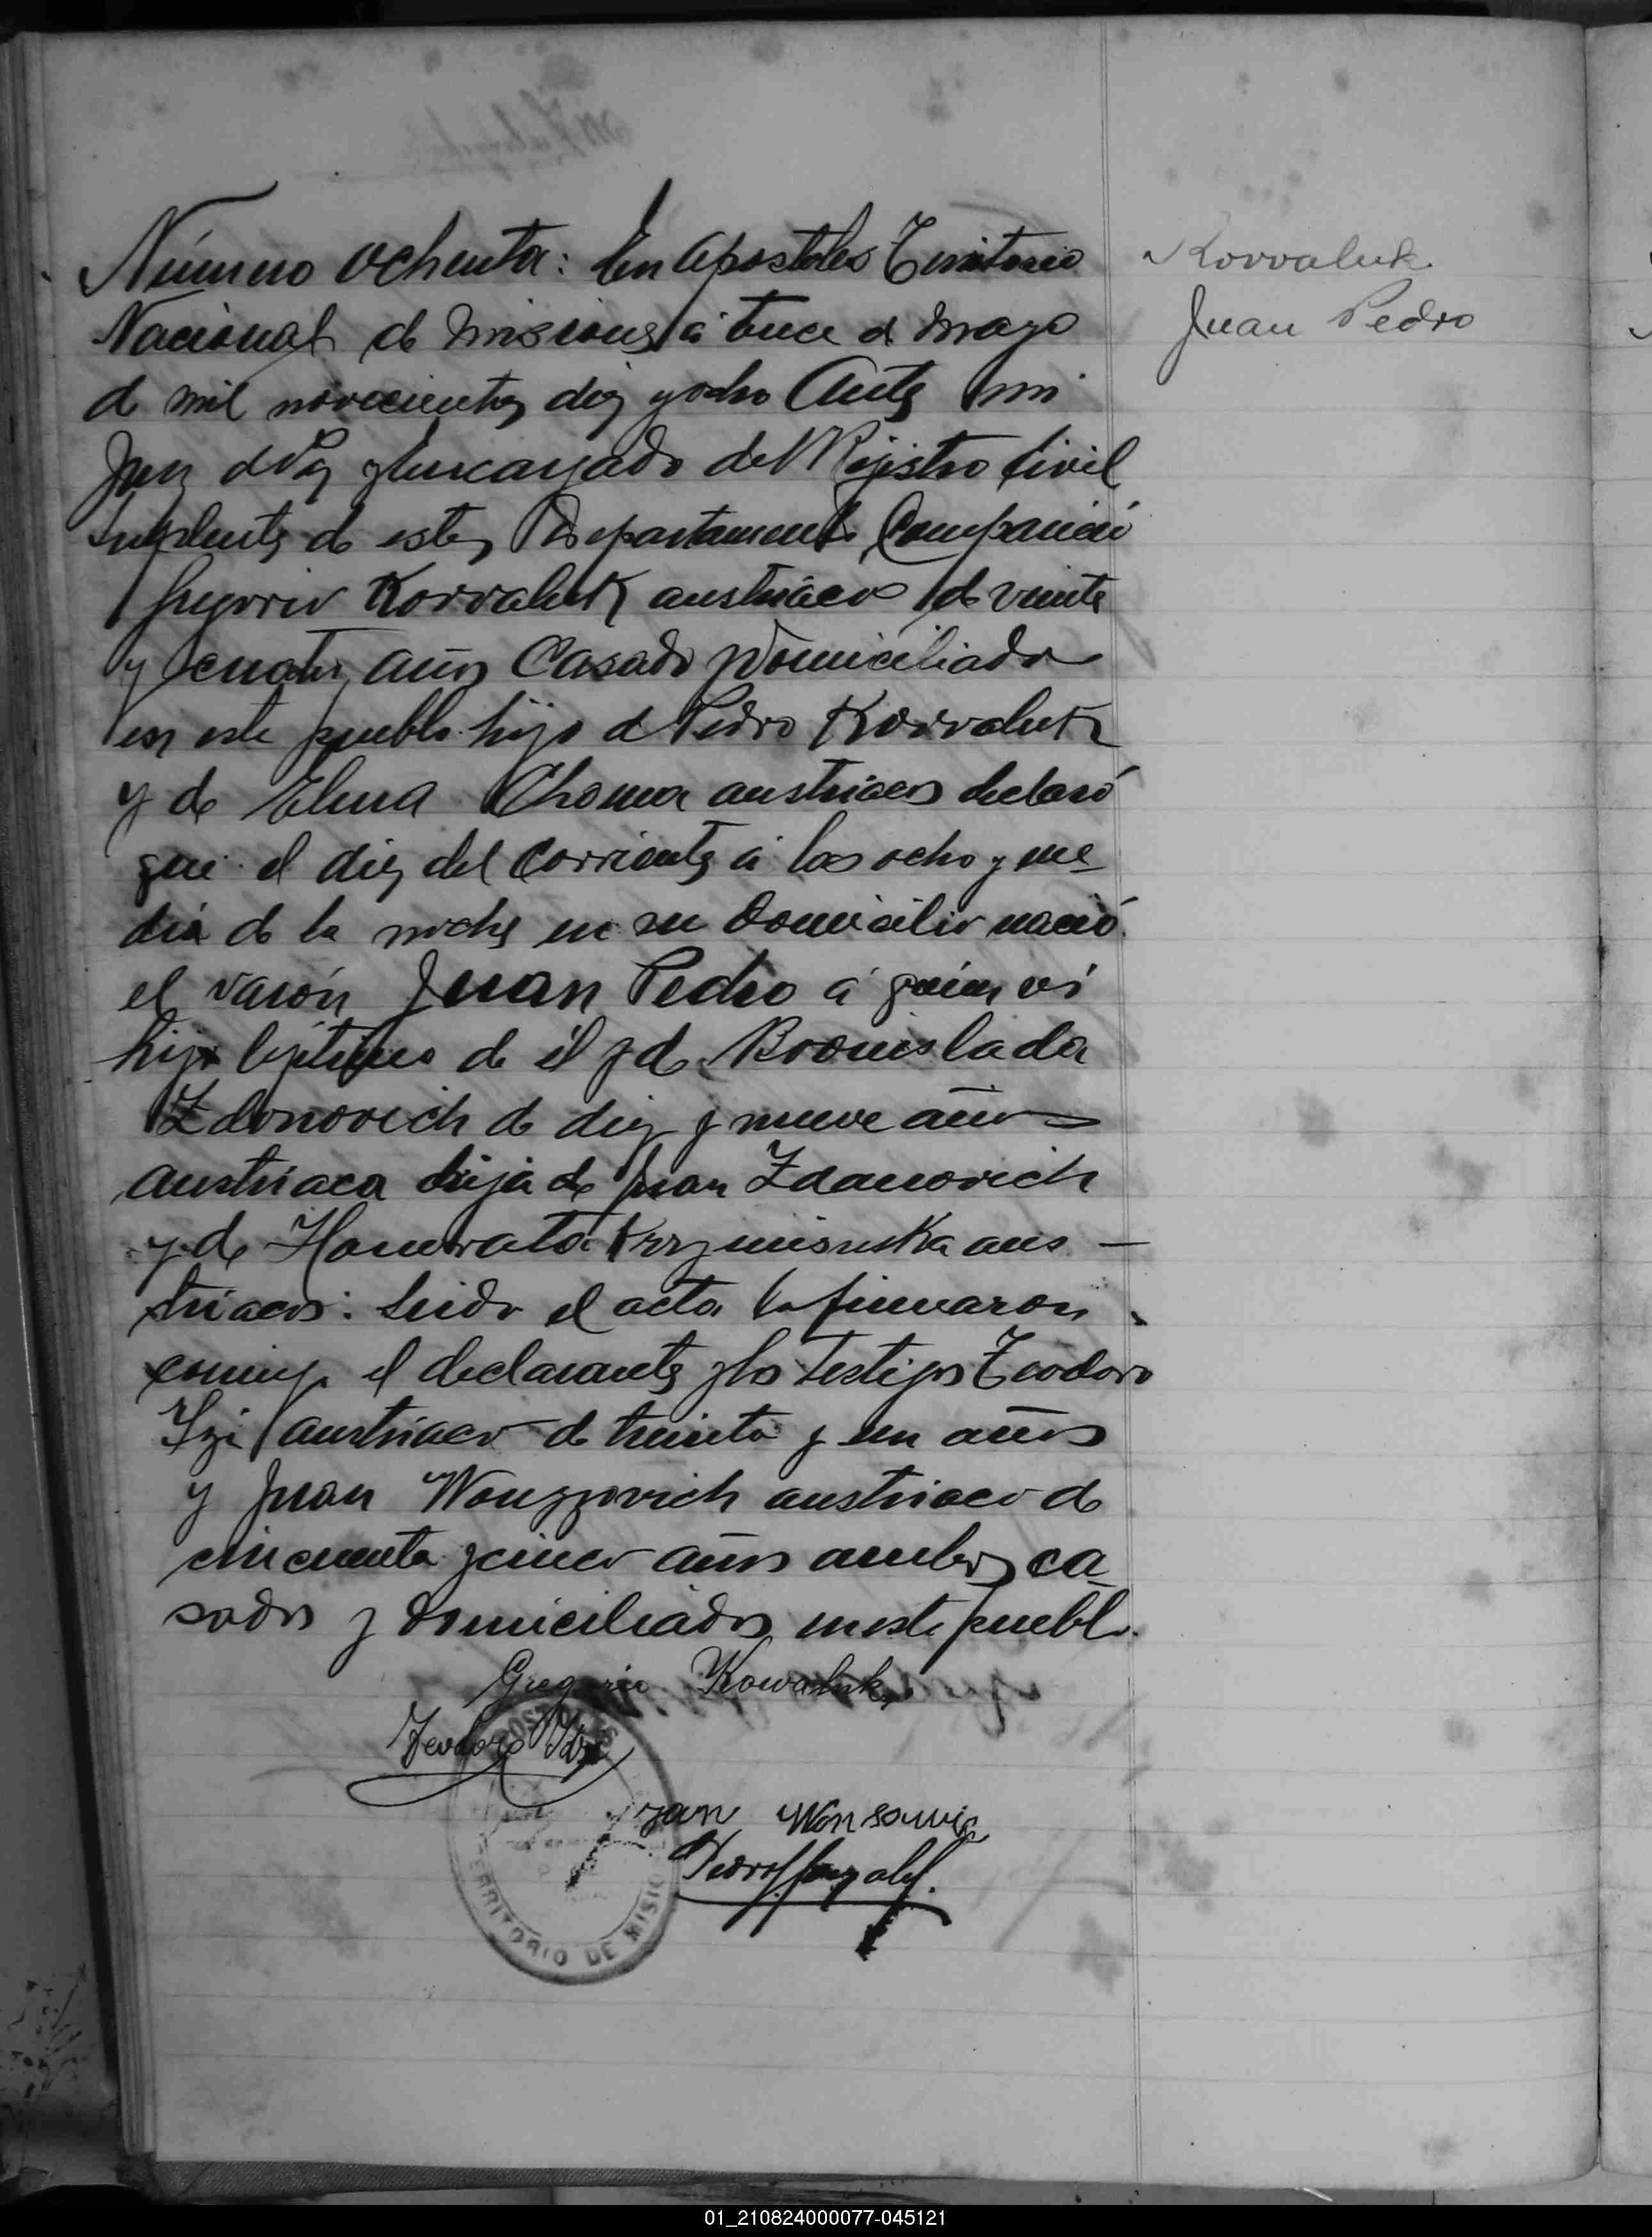 Número ochenta: En Apostoles Territorio
Korvaluk
Juan Pedro
Nacional de Misiones á trece de Mayo
de mil novecientos diez y ocho Ante mi
Juez de Paz y Encargado del Rejistro Civil
Suplente de este Departamento Compareció
Gregorio Korvaluk austriaco de veinte
y cuatro años Casado domiciliado
en este pueblo hijo de Pedro Korvaluk
y de Elena Choma austriacos declaró
que el diez del corriente á las ocho y me
dia de la noche en su domicilio nació
el varón Juan Pedro á quien ví
hijo lejitimo de él y de Bronislada
Zdonovich de diez y nueve años
austriaca hija de Juan Zdanovich
y de Honorata aus —
triacos: Leido el acta la firmaron
conmigo el declarante y los testigos Teodoro
Izi austriaco de treinta y un años
y Juan austriaco de
cincuenta y cinco años ambos ca
sados y domiciliados en este pueblo.
Gregorio Kowaluk
Teodoro
Jan Wonsowic
Pedro Gonzalez
APOSTOLES
TERRITORIO DE MISIO
01_210824000077-045121